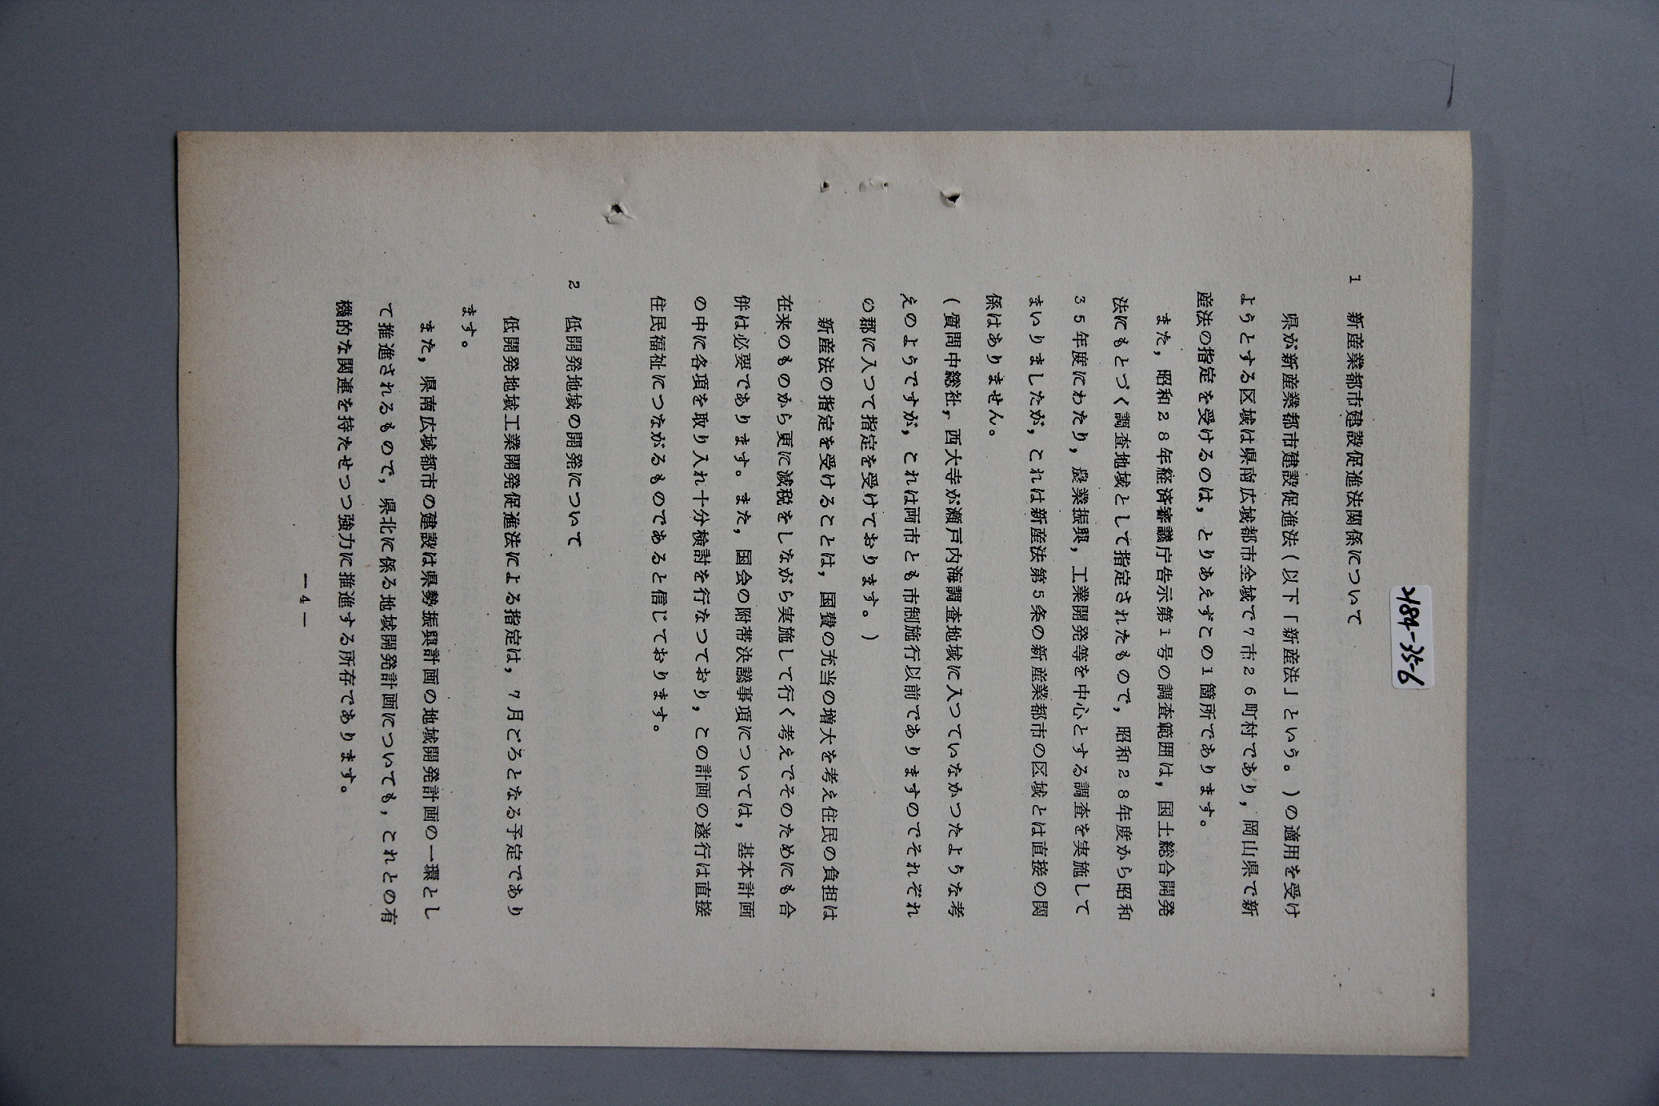 2484-35-6
1 新産業都市建設促進法関係について
県が新産業都市建設促進法(以下「新産法」という。)の適用を受け
ようとする区域は県南広域都市全域で7市26町村であり,岡山県で新
産法の指定を受けるのは,とりあえずこの1箇所であります。
また,昭和28年経済審議庁告示第1号の調査範囲は,国土総合開発
法にもとづく調査地域として指定されたもので,昭和28年度から昭和
35年度にわたり,農業振興,工業開発等を中心とする調査を実施して
まいりましたが,これは新産法第5条の新産業都市の区域とは直接の関
係はありません。
(質問中総社,西大寺が瀬戸内海調査地域に入つていなかつたような考
えのようですが,これは両市とも市制施行以前でありますのでそれぞれ
の郡に入つて指定を受けております。)
新産法の指定を受けることは,国費の充当の増大を考え住民の負担は
在来のものから更に減税をしながら実施して行く考えでそのためにも合
併は必要であります。また,国会の附帯決議事項については,基本計画
の中に各項を取り入れ十分検討を行なつており,この計画の遂行は直接
住民福祉につながるものであると信じております。
2 低開発地域の開発について
低開発地域工業開発促進法による指定は,7月ごろとなる予定であり
ます。
また,県南広域都市の建設は県勢振興計画の地域開発計画の一環とし
て推進されるもので,県北に係る地域開発計画についても,これとの有
機的な関連を持たせつつ強力に推進する所存であります。
—4—